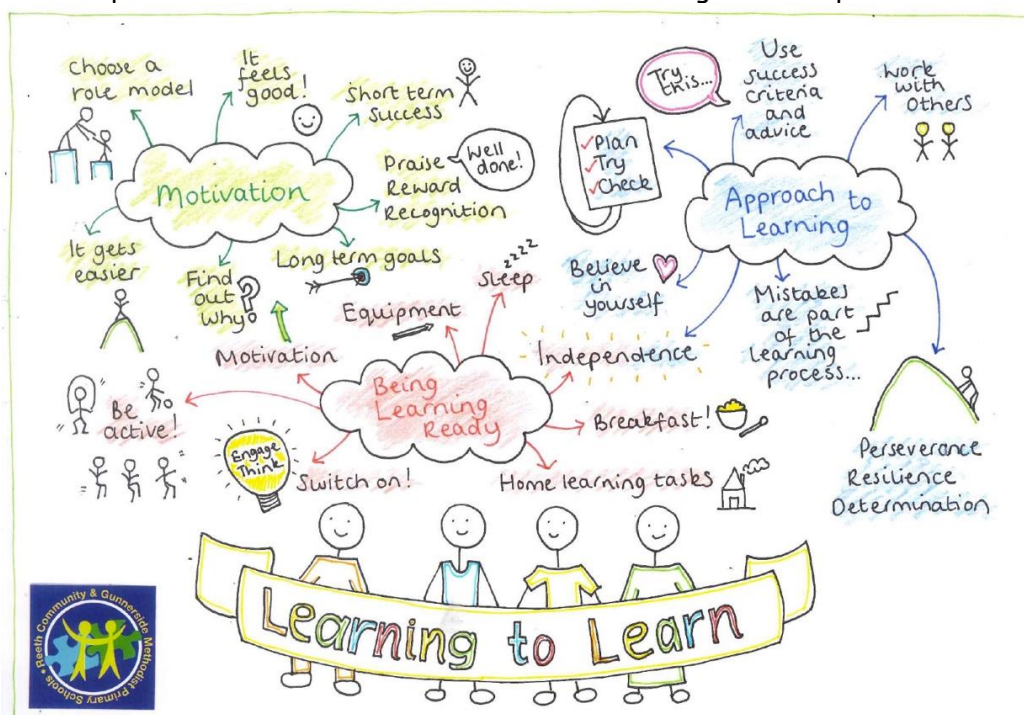 Choose a
role model
It
feels
good!
Short term
Success
Praise
Reward
Recognition
Well
done!
Motivation
It gets
easier
Find
out
Why?
Long term goals
Try
this...
Use
success
criteria
and
advice
Work
with
others
Plan
Try
Check
Approach to
Learning
Believe
in
yourself
Mistakes
are part
of the
learning
process...
Independence
Perseverance
Resilience
Determination
zzzz
Sleep
Equipment
Motivation
Being
Learning
Ready
Be
active!
Engage
Think
Switch on!
Breakfast!
Home learning tasks
Learning to Learn
Reeth Community & Gunnerside Methodist Primary Schools